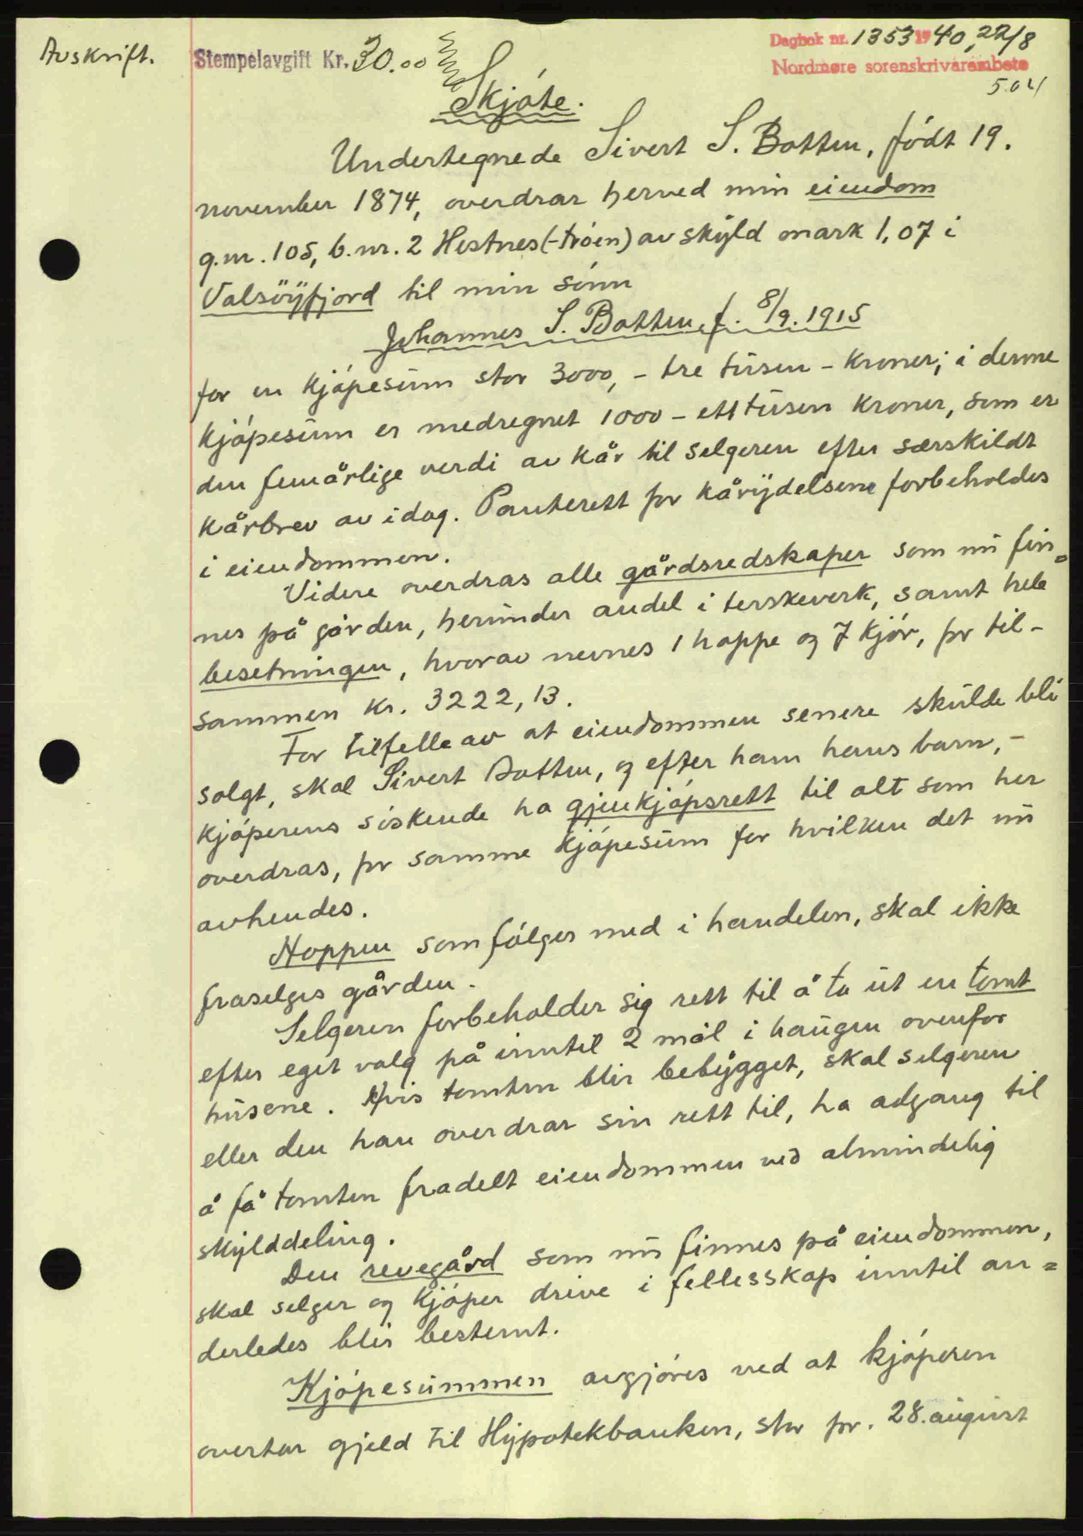 Avskrift.
Stempelavgift Kr. 30.00
Dagbok nr. 1353 1940, 22/8
Nordmøre sorenskriverembete
504
Skjøte.
Undertegnede Sivert S. Botten, født 19.
november 1874, overdrar herved min eiendom
g.nr. 105, b.nr. 2 Hestnes (-trøen) av skyld mark 1,07 i
Valsøyfjord til min sønn
Johannes S. Botten, f. 8/9. 1915
for en kjøpesum stor 3000, - tre tusen - kroner; i denne
kjøpesum er medregnet 1000 - ett tusen kroner, som er
den femårlige verdi av kår til selgeren efter særskildt
kårbrev av idag. Panterett for kårydelsene forbeholdes
i eiendommen.
Videre overdras alle gårdsredskaper som nu fin=
nes på gården, herunder andel i terskeverk, samt hele
besetningen, hvorav nevnes 1 hoppe og 7 kjør, for til-
sammen kr. 3222,13.
For tilfelle av at eiendommen senere skulde bli
solgt, skal Sivert Botten, og efter ham hans barn, -
kjøperens søskende ha gjenkjøpsrett til alt som her
overdras, for samme kjøpesum for hvilken det nu
avhendes.
Hoppen som følger med i handelen, skal ikke
fraselges gården.
Selgeren forbeholder sig rett til å ta ut en tomt
efter eget valg på inntil 2 mål i haugen ovenfor
husene. Hvis tomten blir bebygget, skal selgeren
eller den han overdrar sin rett til, ha adgang til
å få tomten fradelt eiendommen ved almindelig
skylddeling.
Den revegård som nu finnes på eiendommen,
skal selger og kjøper drive i fellesskap inntil an=
derledes blir bestemt.
Kjøpesummen avgjøres ved at kjøperen
overtar gjeld til Hypotekbanken, stor pr. 28. august